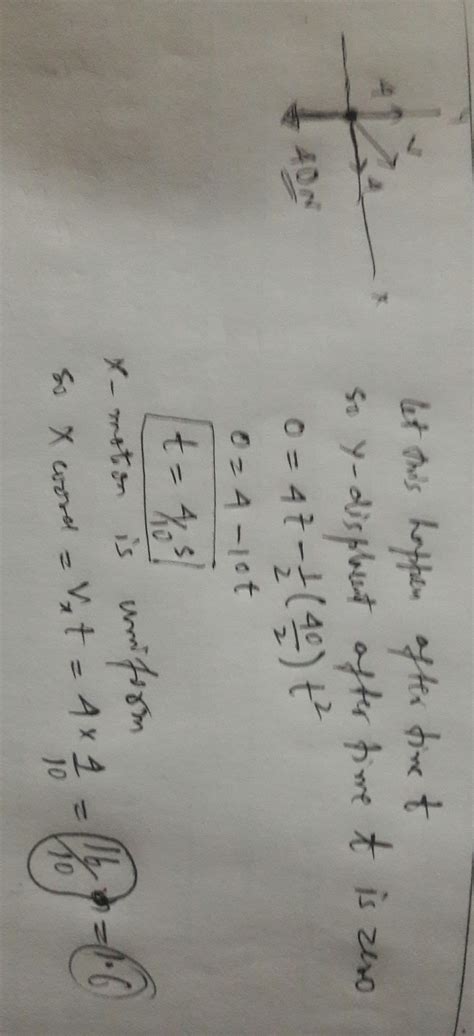 y
4
v
4
x
40N
let this happen after time t
so y-displment after time t is zero
0 = 4t - 1/2 (40/2) t²
0 = 4 - 10t
t = 4/10 s
x - motion is uniform
so x coord = Vₓt = 4 × 4/10 = 16/10 = 1.6